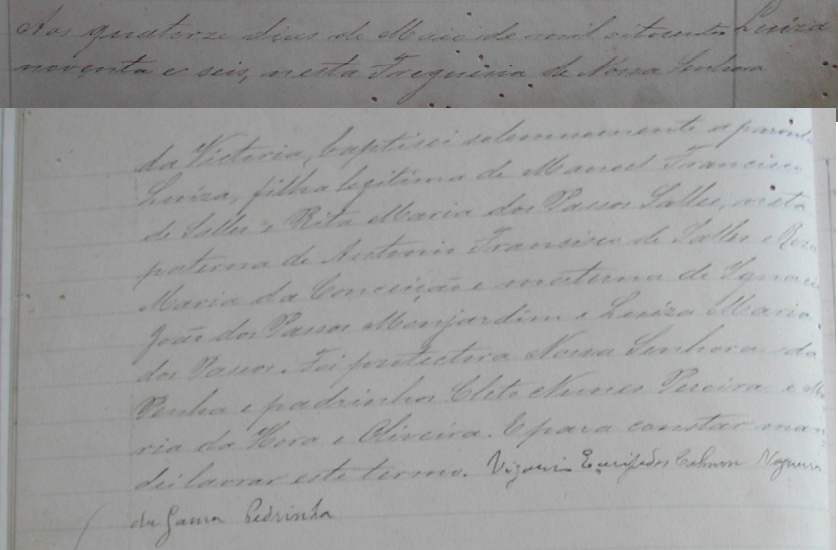 Aos quatorze dias de Maio de mil oitocentos Luiza
noventa e seis, nesta Freguesia de Nossa Senhora
da Victoria, baptisei solemnemente a parvula
Luiza, filha legitima de Manoel Francisco
de Salles e Rita Maria dos Passos Salles, neta
paterna de Antonio Francisco de Salles e Rosa
Maria da Conceição e materna de Ignacio
João dos Passos Monjardim e Luiza Maria
dos Passos. Foi protectora Nossa Senhora da
Penha e padrinhos Cleto Nunes Pereira e Ma
ria da Hora e Oliveira. E para constar man
dei lavrar este termo. Vigario Euripedes Calmon Nogueira
da Gama Pedrinha